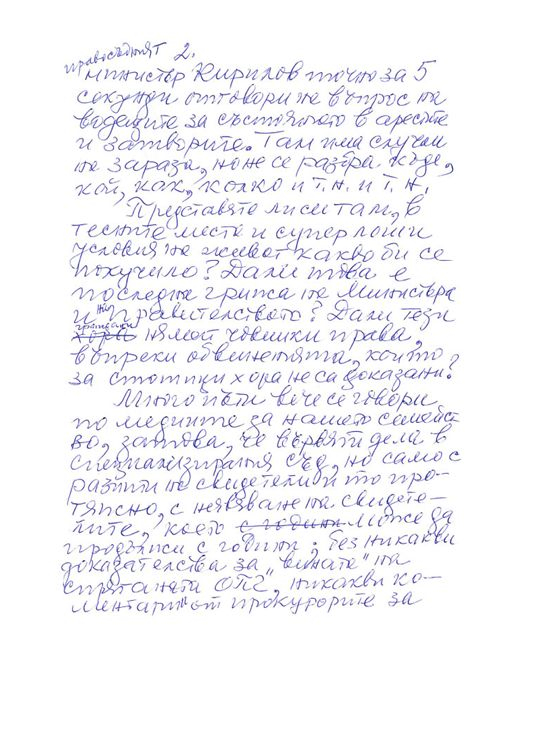 правосъдният 2.
министър Кирилов точно за 5
секунди отговори на въпрос на
водещите за състоянието в арестите
и затворите. Там има случаи
на зараза, но не се разбра къде,
кой, как, колко и т.н. и т.н.
Представяте ли си там, в
тесните места и супер лоши
условия на живот какво би се
получило? Дали това е
последна грижа на Министъра
и на правителството? Дали тези
граждани хора нямат човешки права,
въпреки обвиненията, които
за стотици хора не са доказани?
Много пъти вече се говори
по медиите за нашето семейст-
во, затова, че вървят дела в
специализирания съд, но само с
разпити на свидетели и то про-
тяжно, с неявяване на свидете-
лите, което с години може да
продължи с години, без никакви
доказателства за „вината" на
спряганата ОПГ, никакви ко-
ментари от прокурорите за